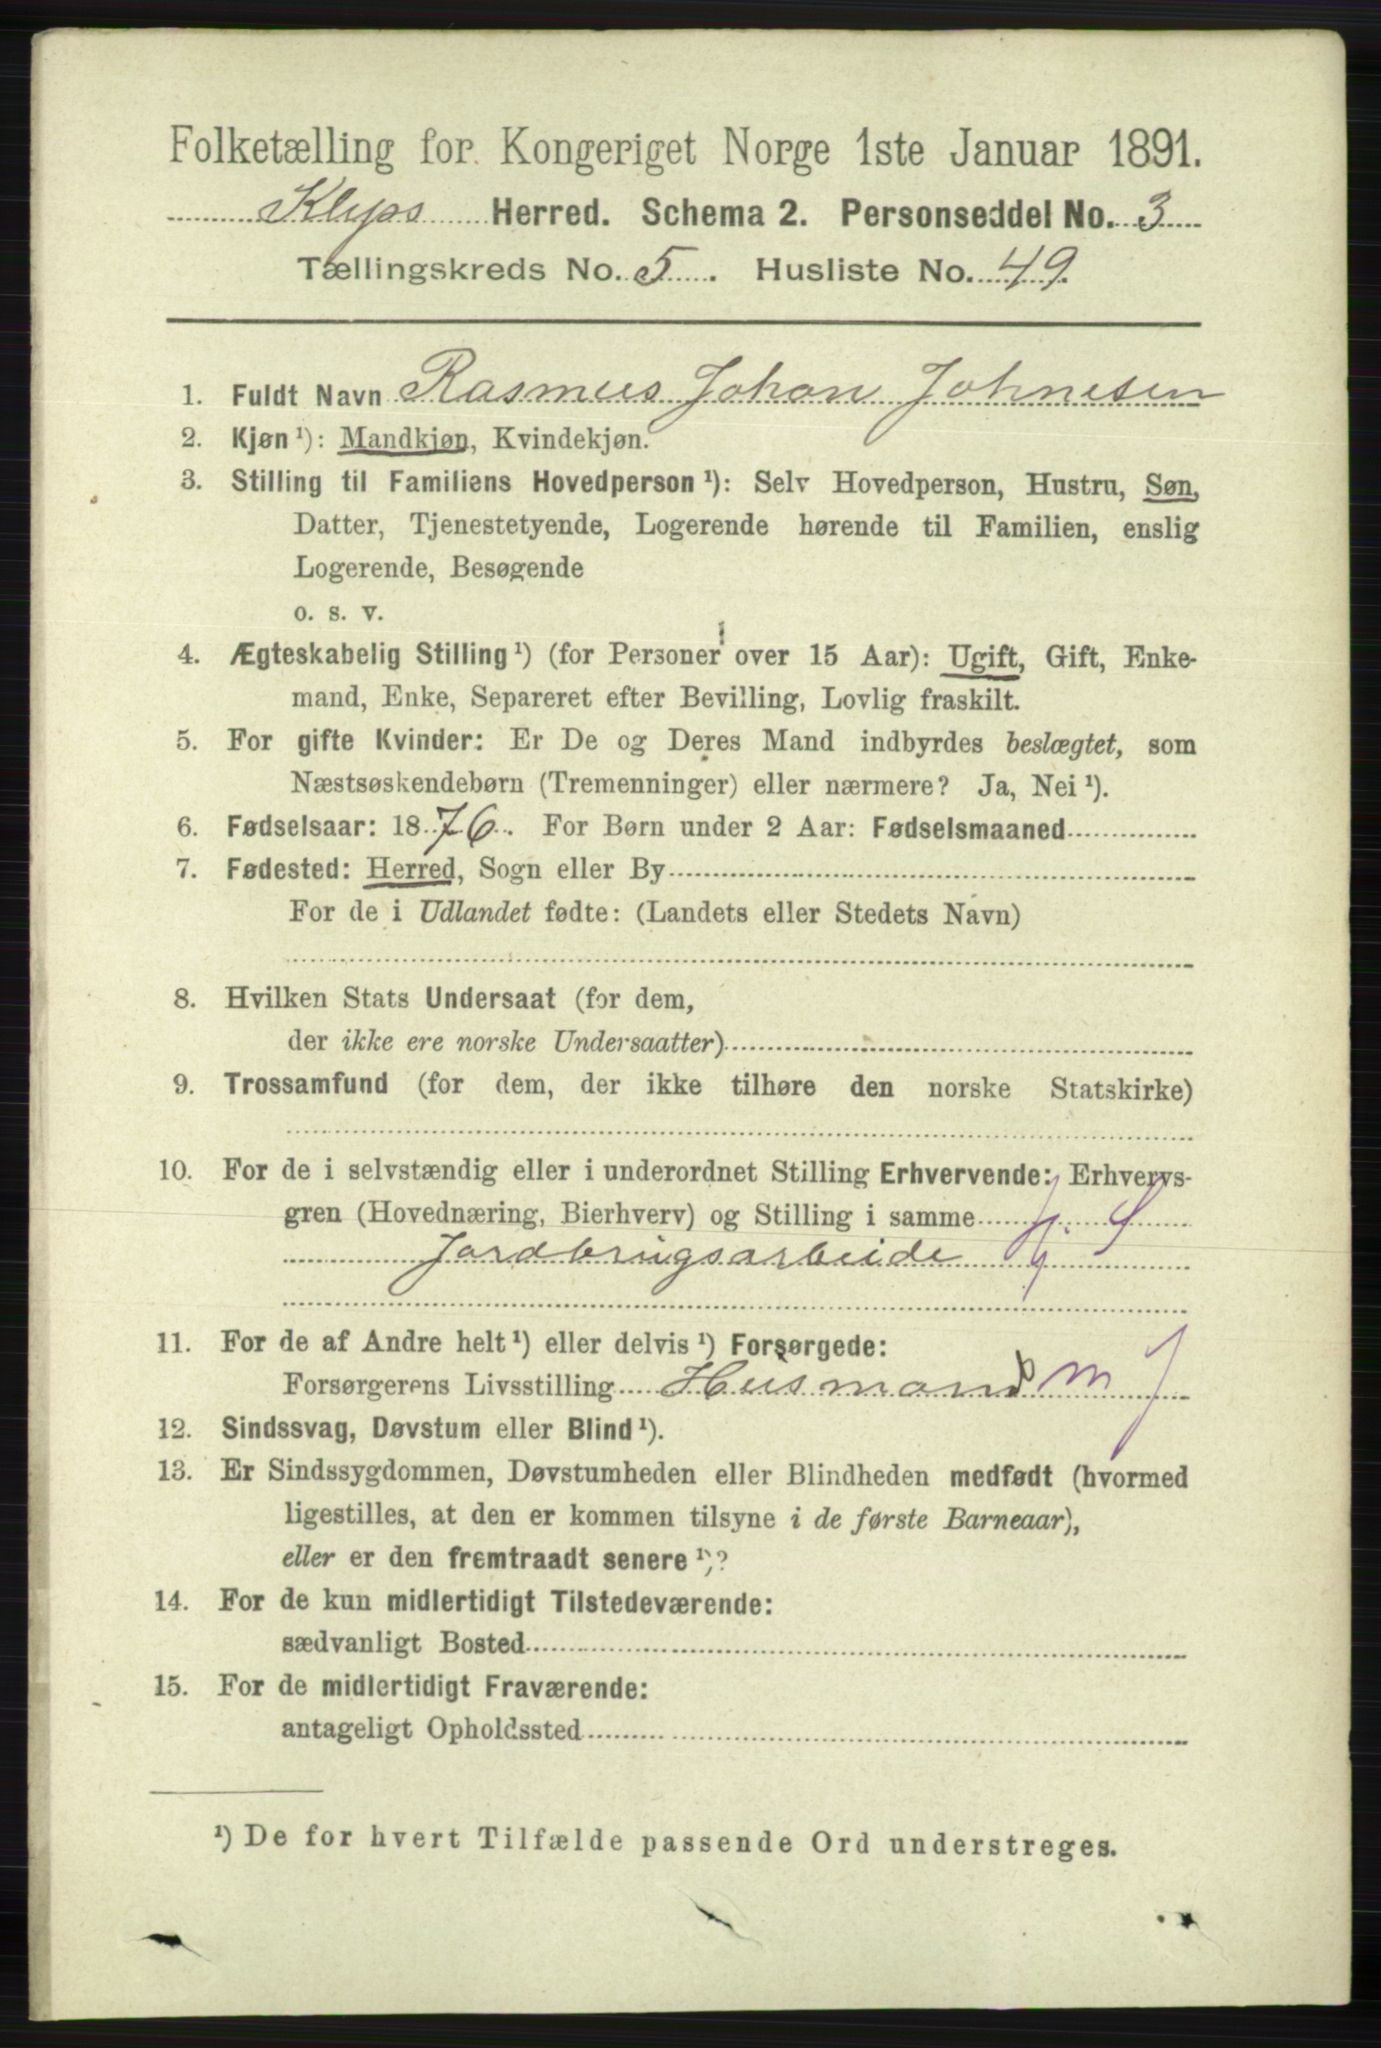 Folketælling for Kongeriget Norge 1ste Januar 1891.
Klyps Herred. Schema 2. Personseddel No. 3
Tællingskreds No. 5. Husliste No. 49.
1. Fuldt Navn Rasmus Johan Johnesen
2. Kjøn ¹): Mandkjøn, Kvindekjøn.
3. Stilling til Familiens Hovedperson ¹): Selv Hovedperson, Hustru, Søn,
Datter, Tjenestetyende, Logerende hørende til Familien, enslig
Logerende, Besøgende
o. s. v.
4. Ægteskabelig Stilling ¹) (for Personer over 15 Aar): Ugift, Gift, Enke-
mand, Enke, Separeret efter Bevilling, Lovlig fraskilt.
5. For gifte Kvinder: Er De og Deres Mand indbyrdes beslægtet, som
Næstsøskendebørn (Tremenninger) eller nærmere? Ja, Nei ¹).
6. Fødselsaar: 1876. For Børn under 2 Aar: Fødselsmaaned
7. Fødested: Herred, Sogn eller By
For de i Udlandet fødte: (Landets eller Stedets Navn)
8. Hvilken Stats Undersaat (for dem,
der ikke ere norske Undersaatter)
9. Trossamfund (for dem, der ikke tilhøre den norske Statskirke)
10. For de i selvstændig eller i underordnet Stilling Erhvervende: Erhvervs-
gren (Hovednæring, Bierhverv) og Stilling i samme
Jordbrugsarbeide
11. For de af Andre helt ¹) eller delvis ¹) Forsørgede:
Forsørgerens Livsstilling Husmand m J
12. Sindssvag, Døvstum eller Blind ¹).
13. Er Sindssygdommen, Døvstumheden eller Blindheden medfødt (hvormed
ligestilles, at den er kommen tilsyne i de første Barneaar),
eller er den fremtraadt senere ¹)?
14. For de kun midlertidigt Tilstedeværende:
sædvanligt Bosted
15. For de midlertidigt Fraværende:
antageligt Opholdssted
¹) De for hvert Tilfælde passende Ord understreges.